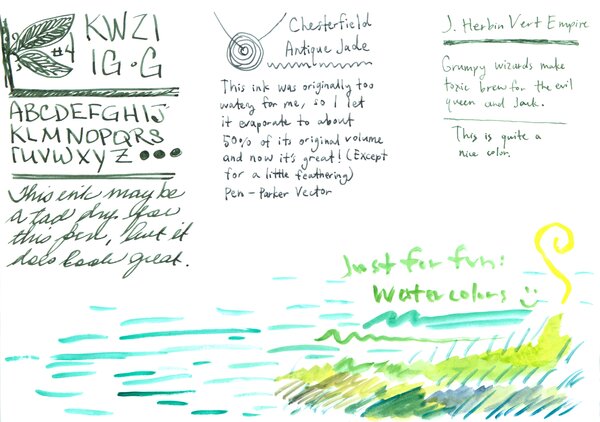 KWZI
#4
IG·G
ABCDEFGHIJ
KLMNOPQRS
TUVWXYZ
This ink may be
a tad dry for
this pen, but it
does look great.
Chesterfield
Antique Jade
This ink was originally too
watery for me, so I let
it evaporate to about
50% of its original volume
and now it's great! (Except
for a little feathering)
Pen - Parker Vector
J. Herbin Vert Empire
Grumpy wizards make
toxic brew for the evil
queen and Jack.
This is quite a
nice color.
Just for fun:
Watercolors